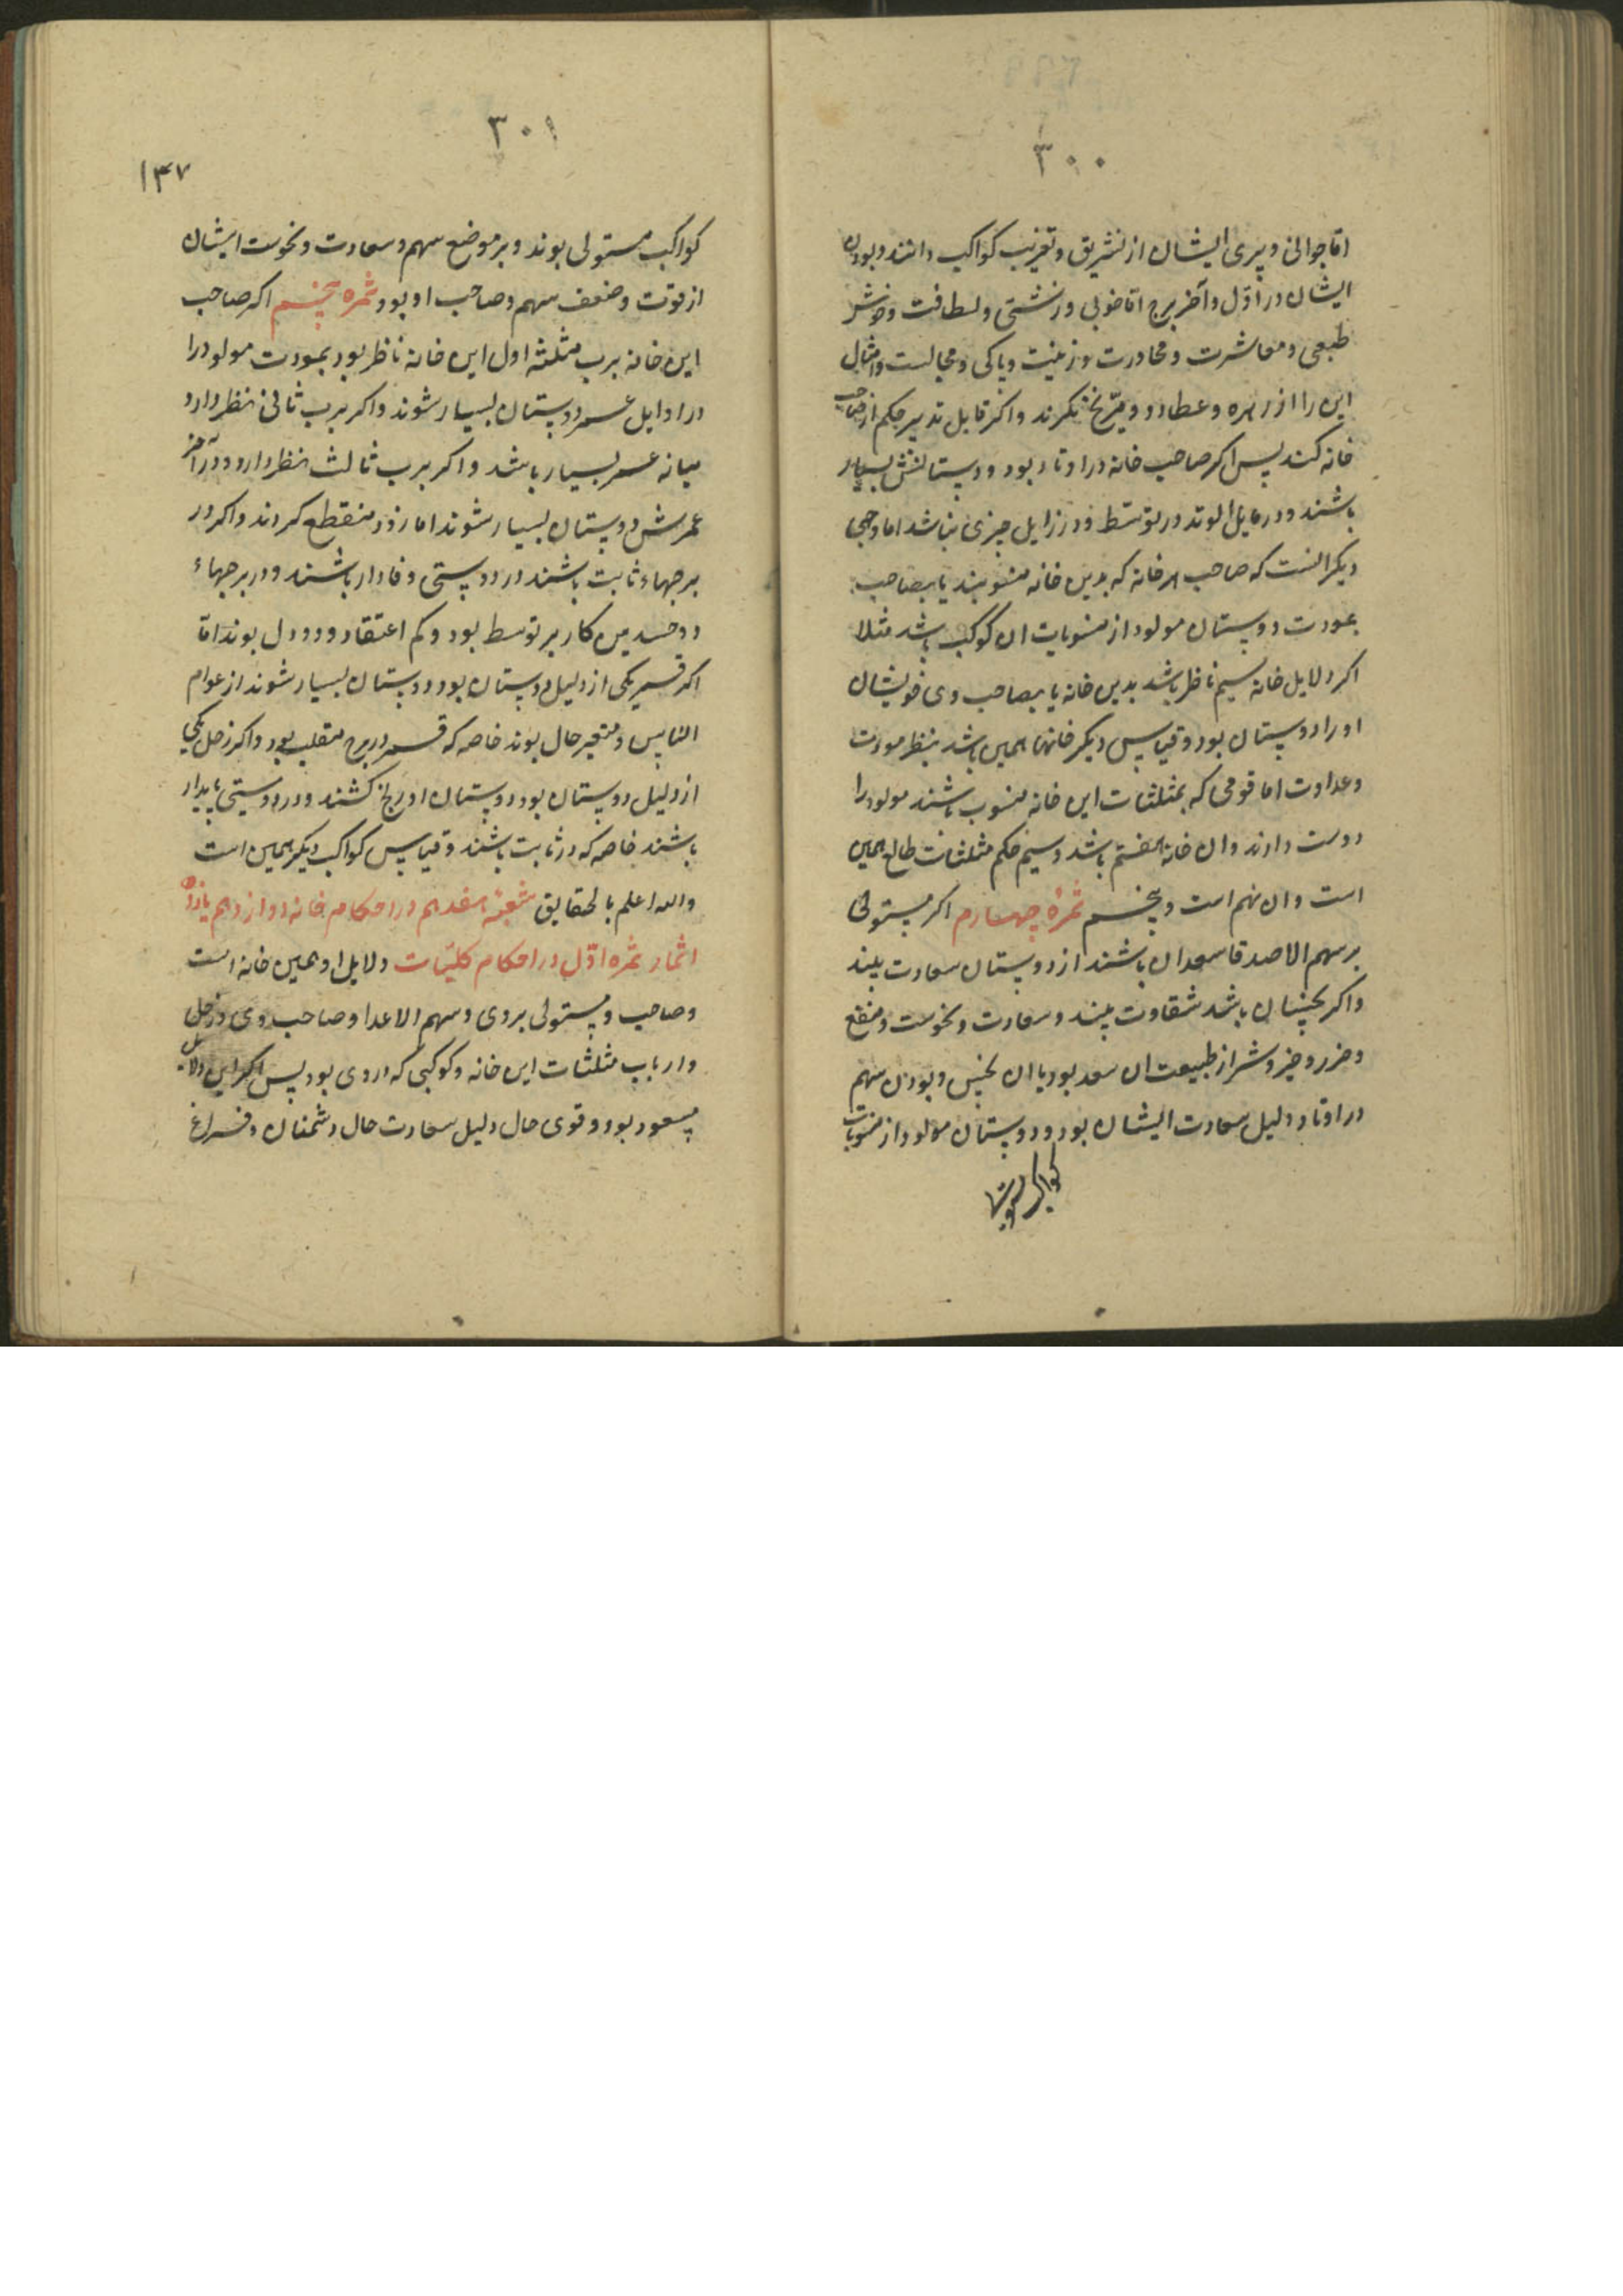 ۳۰۰
اما جوانی و پیری ایشان از تشریق و تغریب کواکب دانند و بودن
ایشان در اول و آخر برج اما خوبی و زشتی و لطافت و خوش
طبعی و معاشرت و محاورت و زینت و پاکی و مجالست و امثال
این را از زهره و عطارد و مریخ نکرند و اکر قابل تدبیر حکم از صاحب
خانه کند پس اکر صاحب خانه در اوتاد بود دوستانش بسیار
باشند و در مایل الوتد در توسط و در زایل چیزی نباشد اما وجهی
دیکر انست که صاحب هر خانه که بدین خانه منسوبند یا بصاحب
بمودت دوستان مولود از منسوبات ان کوکب باشد مثلا
اکر دلایل خانه سیم ناظر باشد بدین خانه یا بصاحب وی خویشان
او را دوستان بود و قیاس دیکر خانها همین باشد بنظر مودت
و عداوت اما قومی که بمثلثات این خانه منسوب باشند مولود را
دوست دارند و ان خانه هفتم باشد و سیم حکم مثلثات طالع همین
است و ان نهم است و پنجم ثمره چهارم اکر مستولی
بر سهم الاصدقا سعدان باشند از دوستان سعادت بیند
و اکر نحسان باشد شقاوت بیند و سعادت و نحوست و منفع
و ضرر و خیر و شر از طبیعت ان سعد بود یا ان نحس و بودن سهم
در اوتاد دلیل سعادت ایشان بود و دوستان مولود از منسوبات
۳۰۱
۱۴۷
کواکب مستولی بوند و بر موضع سهم و سعادت و نحوست ایشان
از قوت و ضعف سهم و صاحب او بود ثمره پنجم اکر صاحب
این خانه برب مثلثه اول این خانه ناظر بود بمودت مولود را
در اوایل عمر دوستان بسیار شوند و اکر برب ثانی نظر دارد
میانه عمر بسیار باشد و اکر برب ثالث نظر دارد در آخر
عمرش دوستان بسیار شوند اما زود منقطع کردند و اکر در
برجهاء ثابت باشند در دوستی وفادار باشند و در برجهاء
دوجسدین کار بر توسط بود و کم اعتقاد و دودل بوند اما
اکر قمر یکی از دلیل دوستان بود دوستان بسیار شوند از عوام
الناس و متغیر حال بوند خاصه که قمر در برج منقلب بود و اکر زحل یکی
از دلیل دوستان بود دوستان او رنج کشند و در دوستی پایدار
باشند خاصه که در ثابت باشند و قیاس کواکب دیکر همین است
والله اعلم بالحقایق شعبه هفدهم در احکام خانه دوازدهم یازده
اثمار ثمره اول در احکام کلیات دلایل او همین خانه است
و صاحب و مستولی بر وی و سهم الاعدا و صاحب وی و زحل
و ارباب مثلثات این خانه و کوکبی که در وی بود پس اکر این دلایل
مسعود بود و قوی حال دلیل سعادت حال دشمنان و فراغ